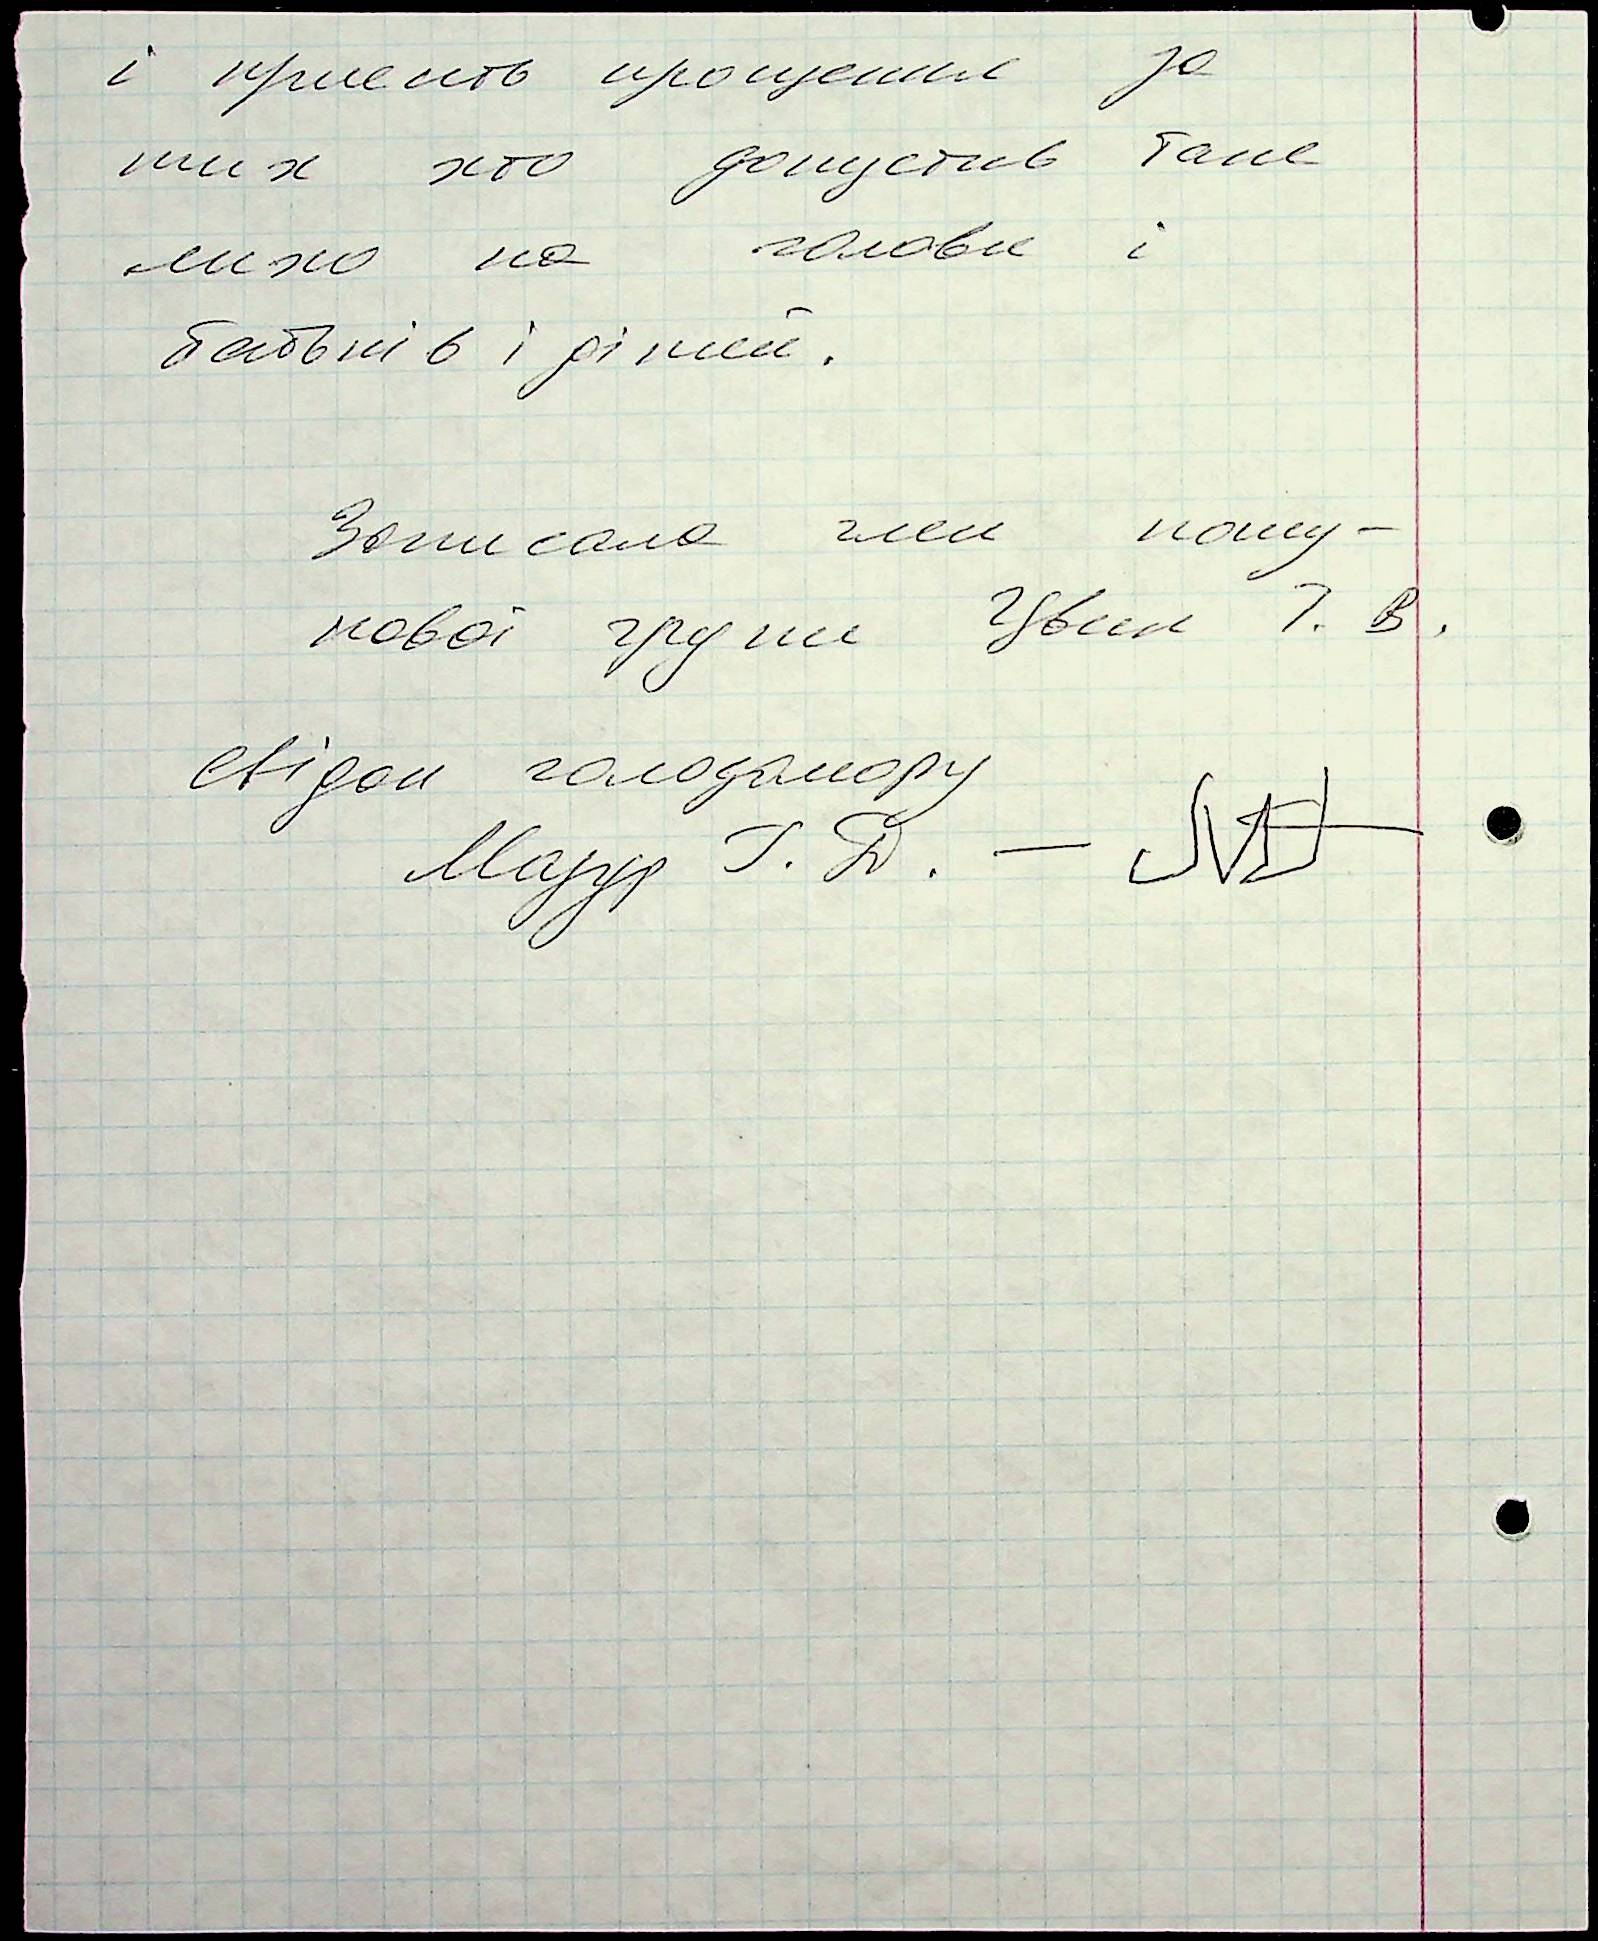 і просить прощення за
тих хто допустив таке
лихо на голови і
батьків і дітей.
Записала член пошу-
кової групи Цвик Т. В.
Свідок голодомору
Мазур Г. Д. —